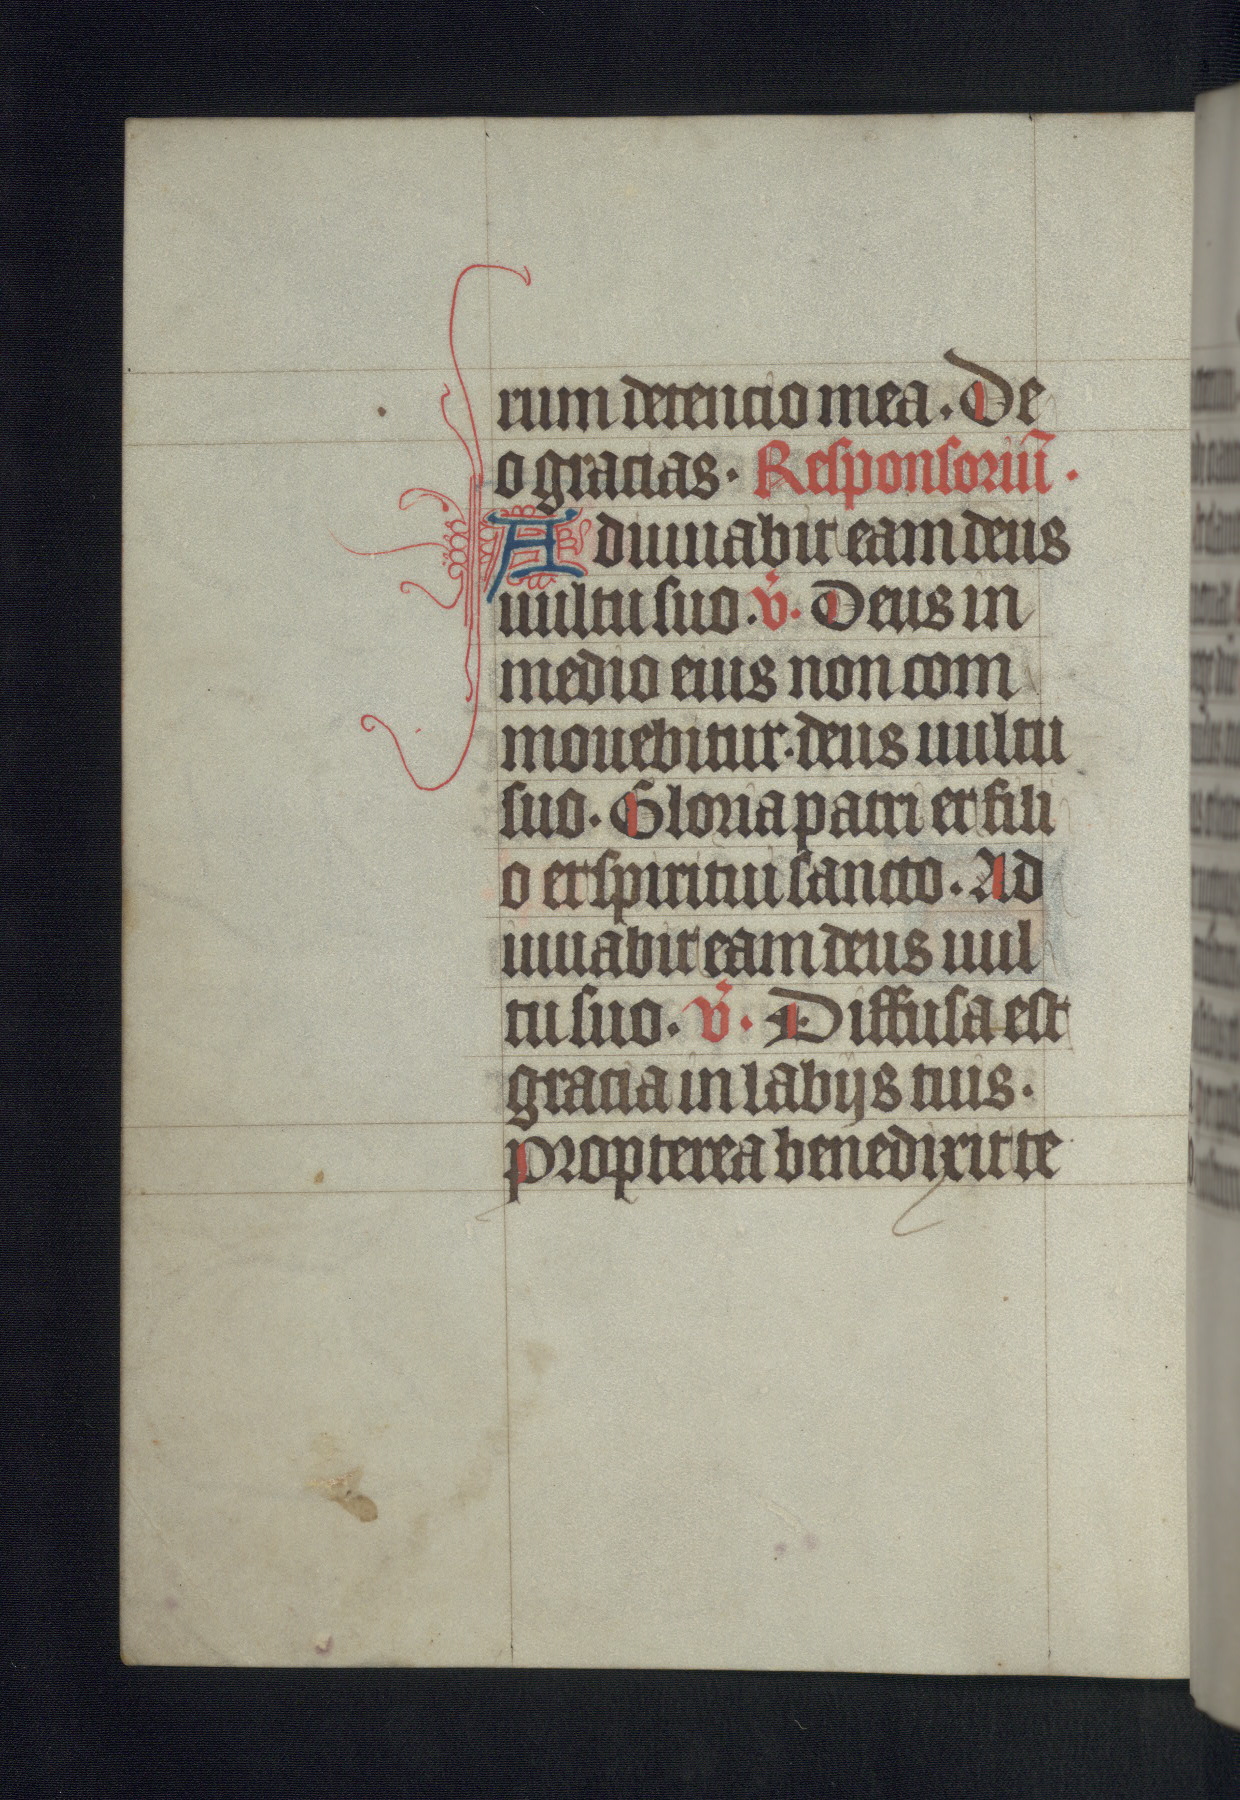 rum detencio mea. De
o gracias. Responsoriū.
Adiuuabit eam deus
uultu suo. v̄. Deus in
medio eius non com
mouebitur. deus uultu
suo. Gloria patri et fili
o et spiritui sancto. Ad
iuuabit eam deus uul
tu suo. v̄. Diffusa est
gracia in labijs tuis.
Propterea benedixit te